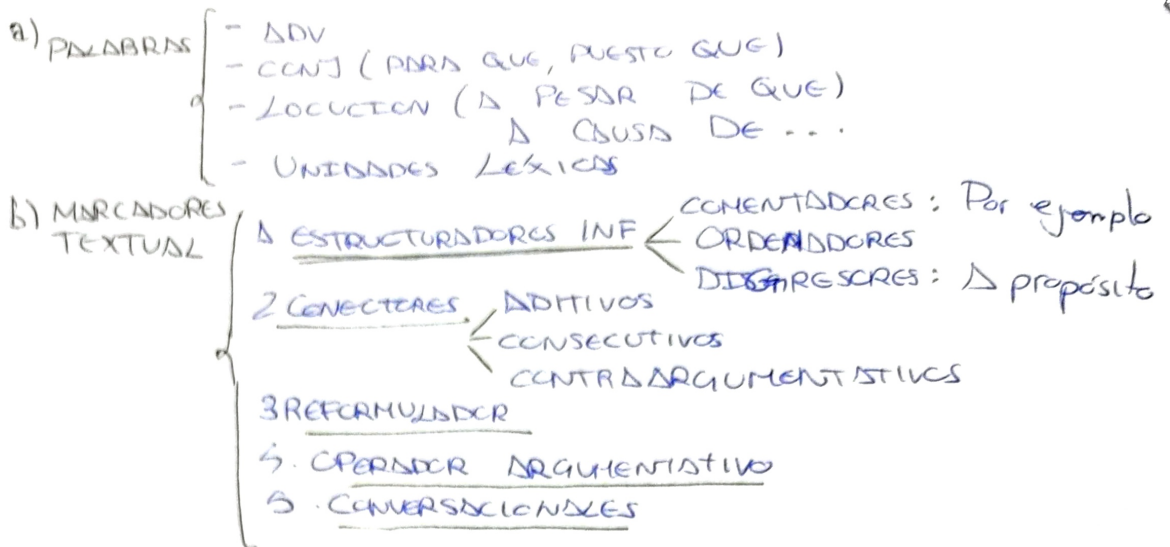 a) PALABRAS
- ADV
- CONJ (PARA QUE, PUESTO QUE)
- LOCUCION (A PESAR DE QUE)
A CAUSA DE ...
- UNIDADES LÉXICAS
b) MARCADORES
TEXTUAL
1 ESTRUCTURADORES INF
COMENTADORES: Por ejemplo
ORDENADORES
DIGRESORES: A propósito
2 CONECTORES.
ADITIVOS
CONSECUTIVOS
CONTRAARGUMENTATIVOS
3 REFORMULADOR
4. OPERADOR ARGUMENTATIVO
5. CONVERSACIONALES